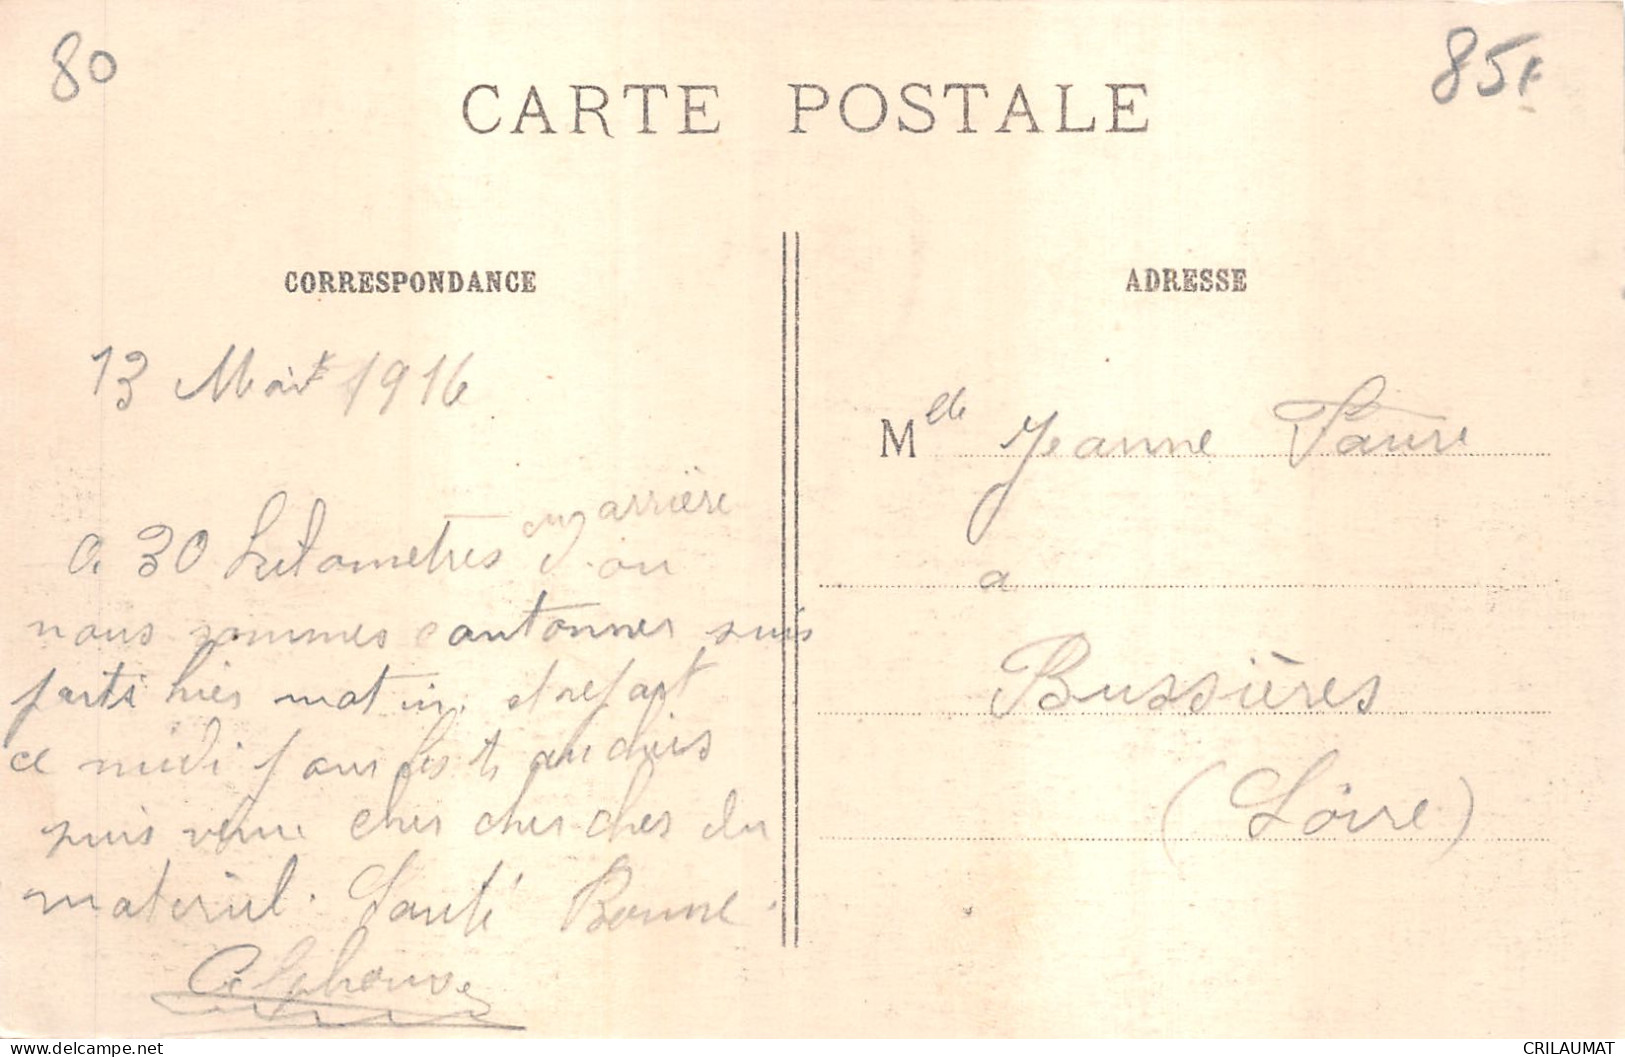 80
85F
CARTE POSTALE
CORRESPONDANCE
ADRESSE
13 Mai 1916
a 30 kilometres en arrière d'ou
nous sommes cantonner suis
parti hier matin. et repart
ce midi pour les
suis venu cher chercher du
materiel. Santé Bonne.
Alphonse
Melle Jeanne Faure
a
Bussières
(Loire)
www.delcampe.net
CRILAUMAT